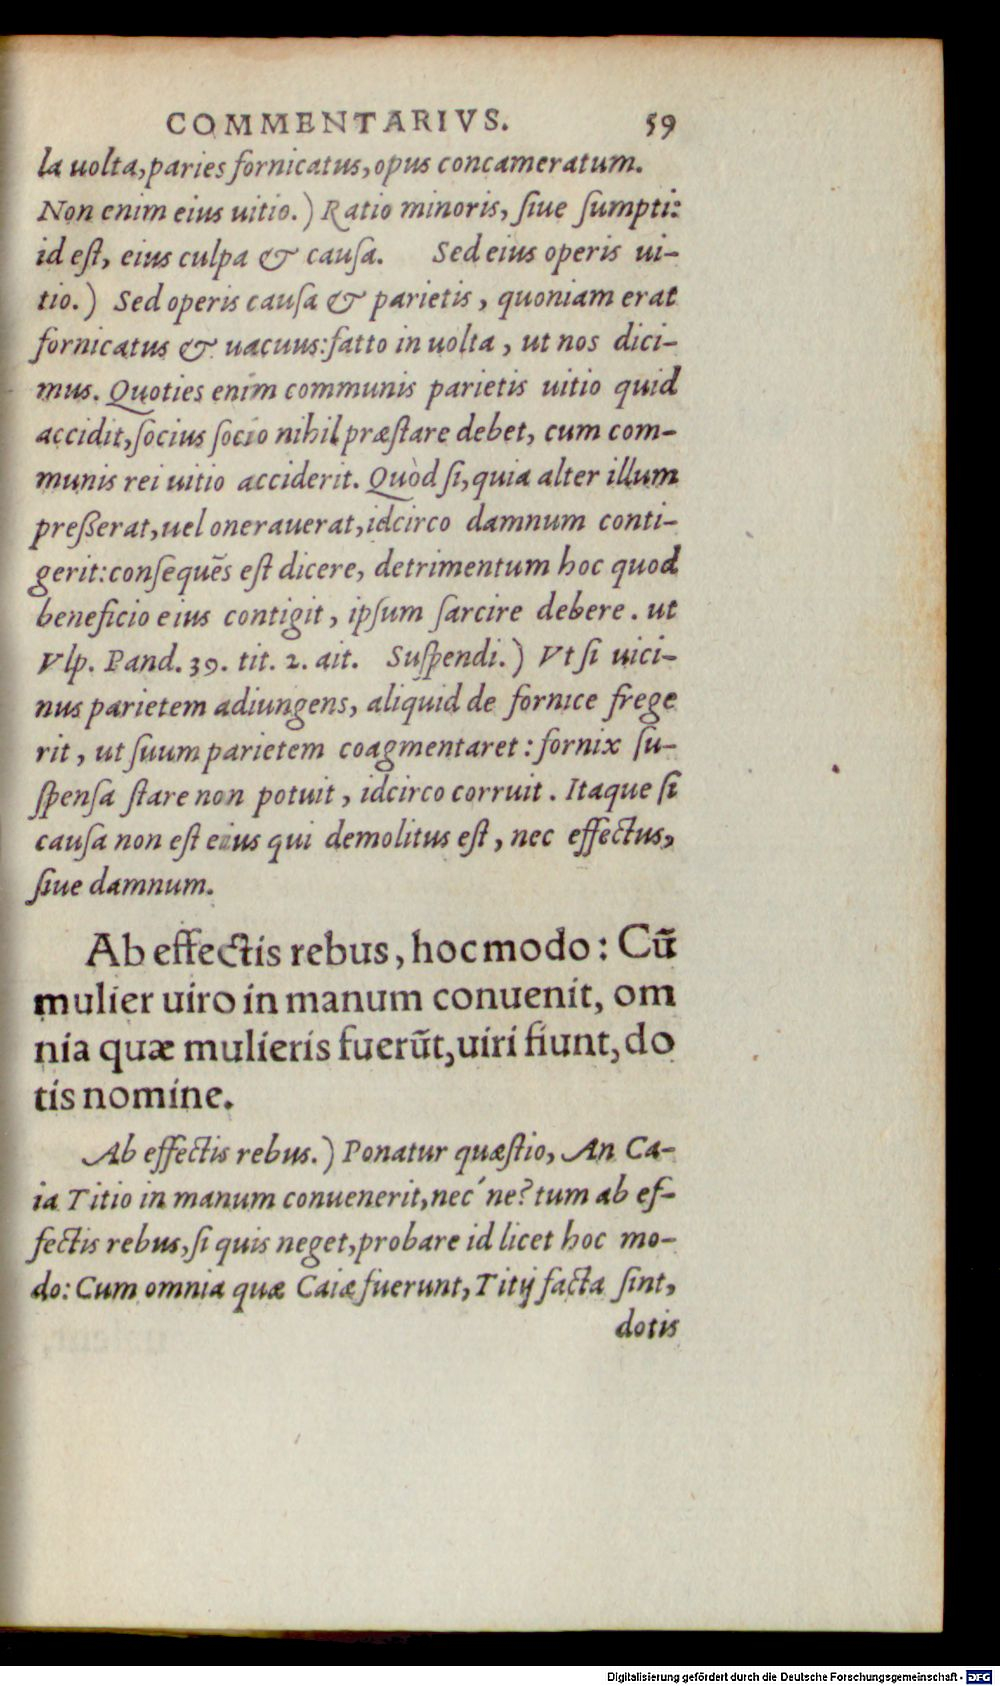 COMMENTARIVS. 59
la uolta, paries fornicatus, opus concameratum.
Non enim eius uitio.) Ratio minoris, ſiue ſumpti:
id eſt, eius culpa & cauſa. Sed eius operis ui-
tio.) Sed operis cauſa & parietis, quoniam erat
fornicatus & uacuus: fatto in uolta, ut nos dici-
mus. Quoties enim communis parietis uitio quid
accidit, ſocius ſocio nihil præſtare debet, cum com-
munis rei uitio acciderit. Quòd ſi, quia alter illum
preßerat, uel onerauerat, idcirco damnum conti-
gerit: conſequẽs eſt dicere, detrimentum hoc quod
beneficio eius contigit, ipſum ſarcire debere. ut
Vlp. Pand. 39. tit. 2. ait. Suſpendi.) Vt ſi uici-
nus parietem adiungens, aliquid de fornice frege
rit, ut ſuum parietem coagmentaret: fornix ſu-
ſpenſa ſtare non potuit, idcirco corruit. Itaque ſi
cauſa non eſt eius qui demolitus eſt, nec effectus,
ſiue damnum.
Ab effectis rebus, hoc modo: Cũ
mulier uiro in manum conuenit, om
nia quæ mulieris fuerũt, uiri fiunt, do
tis nomine.
Ab effectis rebus.) Ponatur quæſtio, An Ca-
ia Titio in manum conuenerit, nec´ne? tum ab ef-
fectis rebus, ſi quis neget, probare id licet hoc mo-
do: Cum omnia quæ Caiæ fuerunt, Titij facta ſint,
dotis
Digitalisierung gefördert durch die Deutsche Forschungsgemeinschaft - DFG